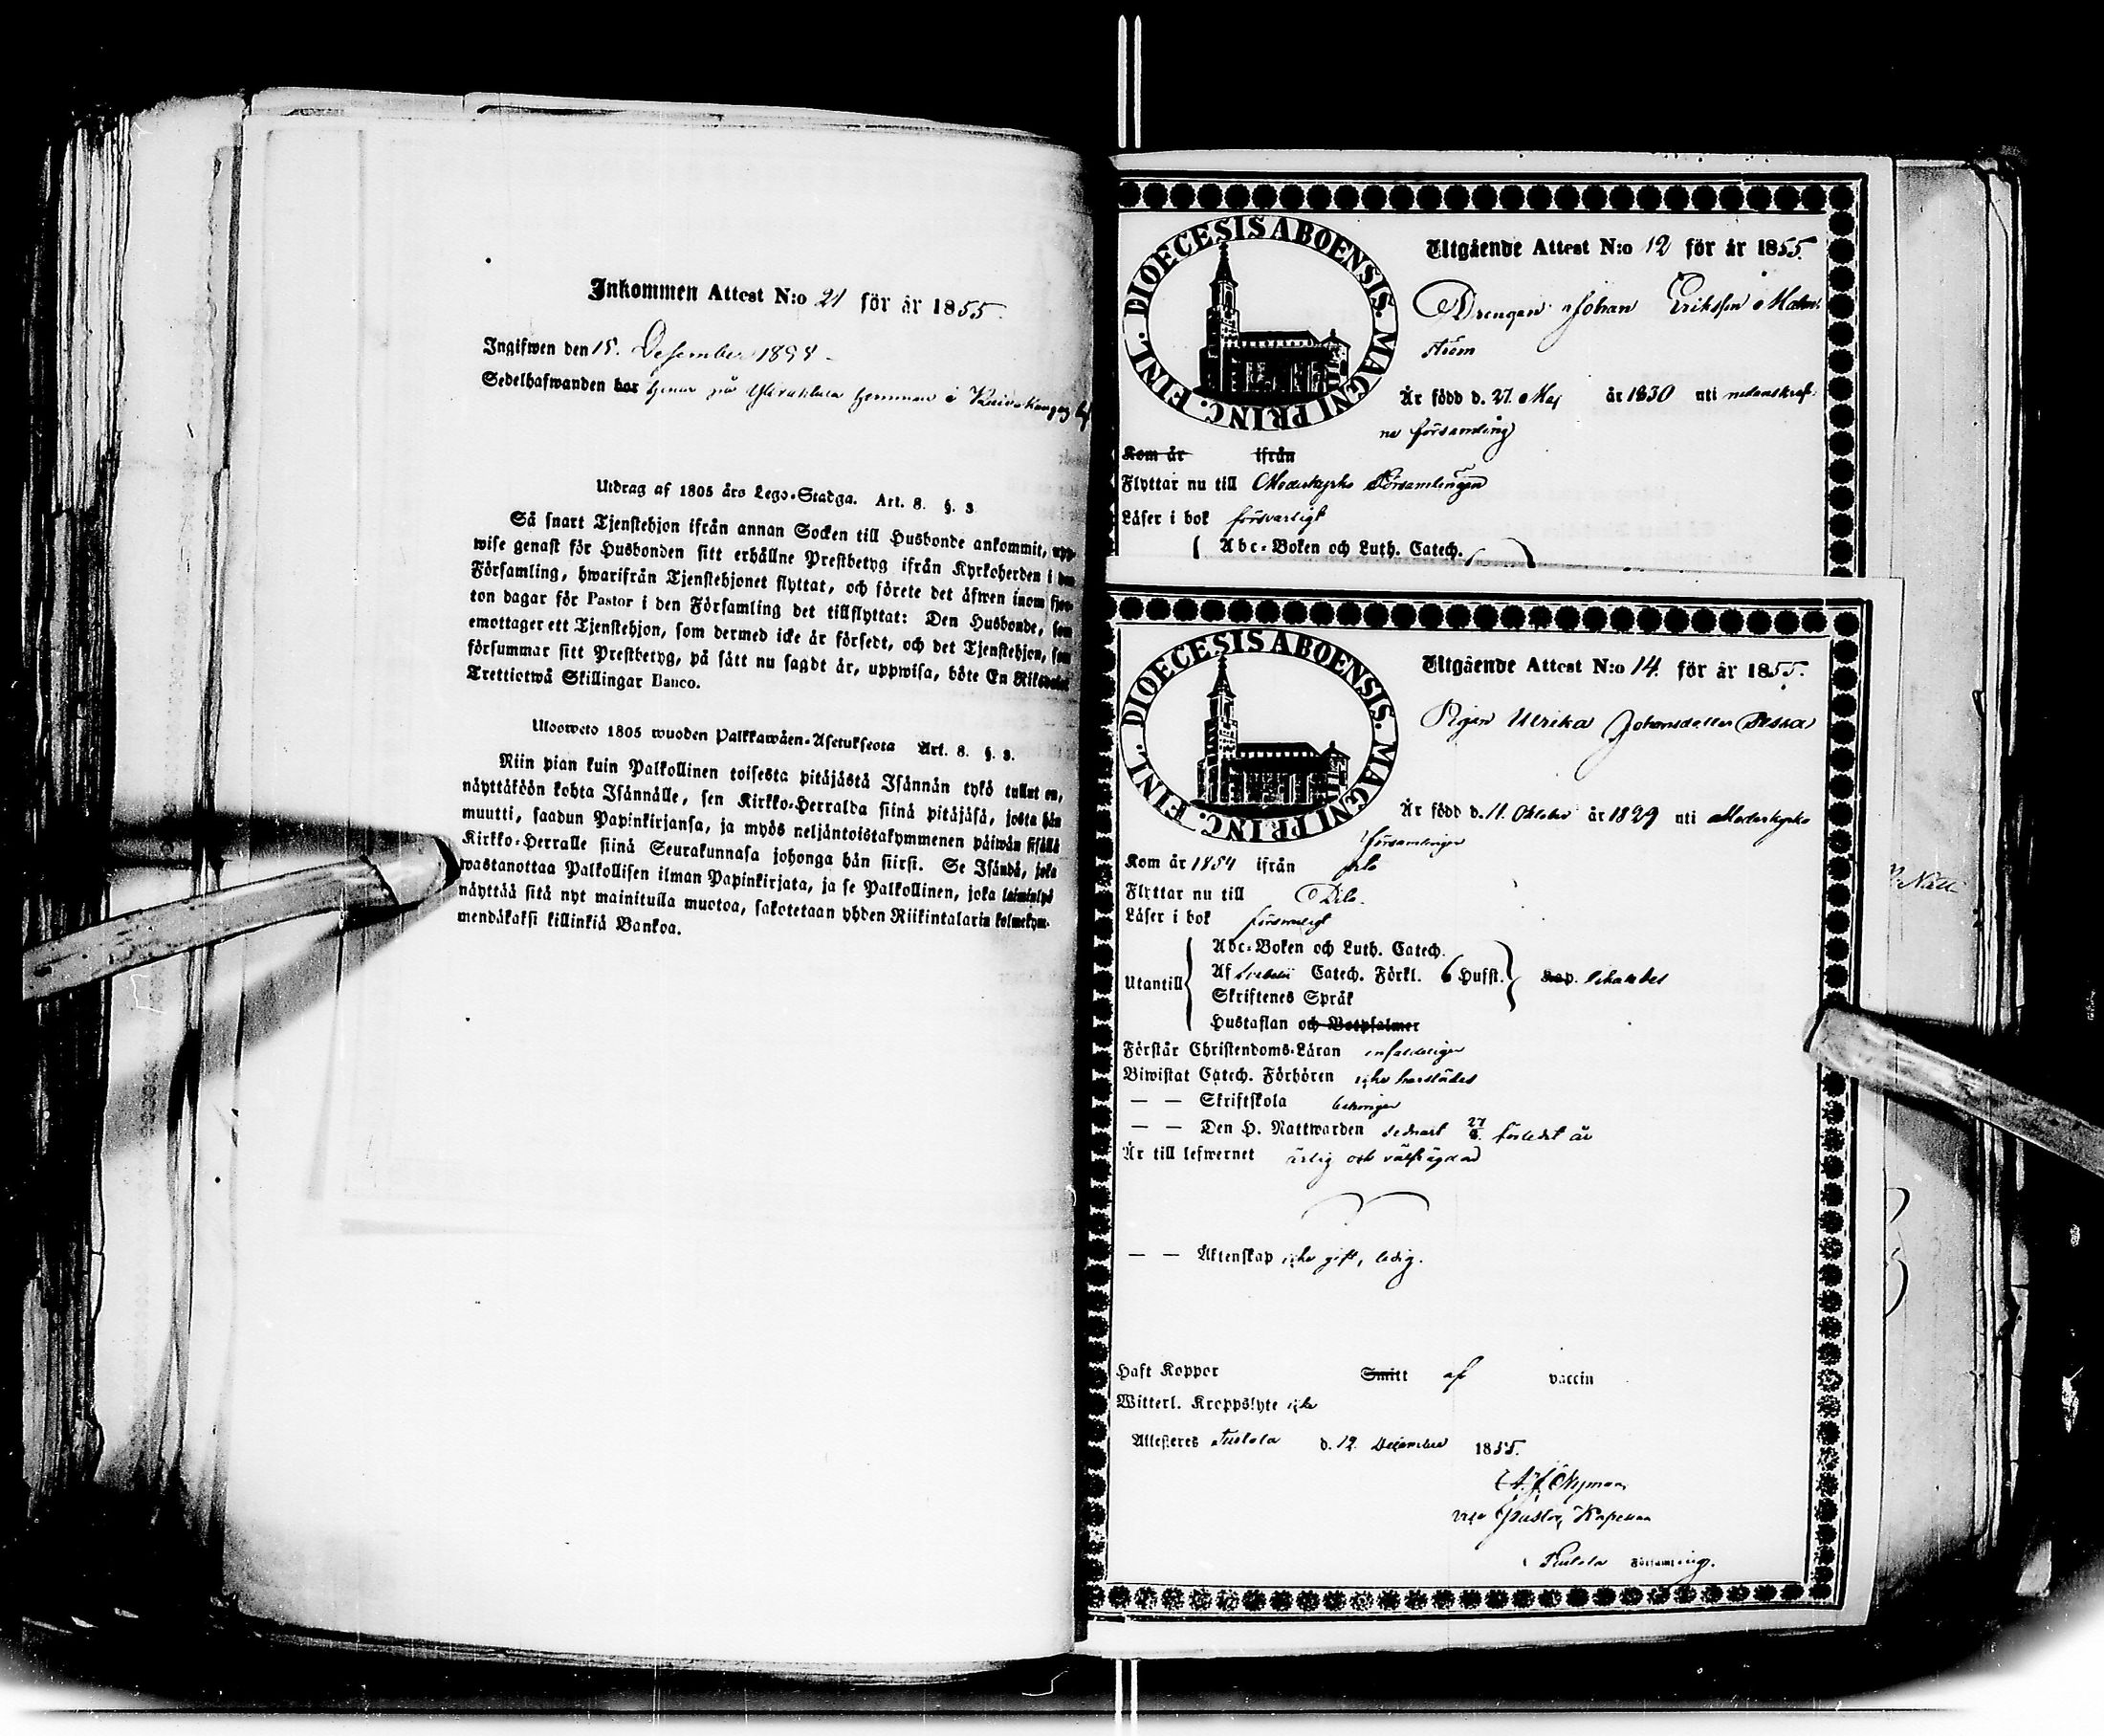 Inkommen Attest N:o 21 för år 1855
Ingifwen den 15. December 1898
Sedelhafwanden har
Utdrag af 1805 års Lego-Stadga. Art. 8. §. 3
Så snart Tjenstehjon ifrån annan Socken till Husbonde ankommit, upp-
wise genast för Husbonden sitt erhållne Prestbetyg ifrån Kyrkoherden i den
Församling, hwarifrån Tjenstehjonet flyttat, och förete det äfwen inom fjor-
ton dagar för Pastor i den Församling det tillflyttat: Den Husbonde, som
emottager ett Tjenstehjon, som dermed icke är försedt, och det Tjenstehjon, som
försummar sitt Prestbetyg, på sätt nu sagdt är, uppwisa, böte En Riksdaler
Trettiotwå Skillingar Banco.
Ulosweto 1805 wuoden Palkkawäen-Asetuksesta Art. 8. §. 3.
Niin pian kuin Palkollinen toisesta pitäjästä Isännän tykö tullut on,
näyttäköön kohta Isännälle, sen Kirkko-Herralda siinä pitäjäsä, josta hän
muutti, saadun Papinkirjansa, ja myös neljäntoistakymmenen päiwän sisällä
Kirkko-Herralle siinä Seurakunnasa johonga hän siirsi. Se Isändä, joka
wastanottaa Palkollisen ilman Papinkirjata, ja se Palkollinen, joka laiminlyö
näyttää sitä nyt mainitulla muotoa, sakotetaan yhden Riikintalarin kolmekym-
mendäkaksi killinkiä Bankoa.
DIOECESIS ABOENSIS. MAGNI PRINC. FINL.
Utgående Attest N:o 12 för år 1855.
Drengen Johan Eriksson Malm-
ström
Är född d. 27. Maj år 1830 uti nedanskref-
ne församling
Kom år ifrån
Flyttar nu till Moderkyrko Församlingen
Läser i bok försvarligt
Abc-Boken och Luth. Catech.
DIOECESIS ABOENSIS. MAGNI PRINC. FINL.
Utgående Attest N:o 14. för år 1855.
Pigan Ulrika Johansdotter
Är född d. 11. Oktober år 1829 uti Moderkyrko
församlingen
Kom år 1854 ifrån
Flyttar nu till Dito.
Läser i bok försvarligt
Utantill
Abc-Boken och Luth. Catech.
Af Svebelii Catech. Förkl. 6 Hufst.
Skriftenes Språk
Hustaflan och Botpsalmer
Förstår Christendoms-Läran enfaldeligen
Biwistat Catech. Förhören icke härstädes
— — Skriftskola behörigen
— — Den H. Nattwarden sednast förledit år
Är till lefwernet ärlig och välfrägdad
— — Äktenskap icke gift, ledig.
Haft Koppor Smitt af vaccin
Witterl. Kroppslyte icke
Attesteres Tuulola d. 12. December 1855.
vice Pastor, Kapellan
i Församling.